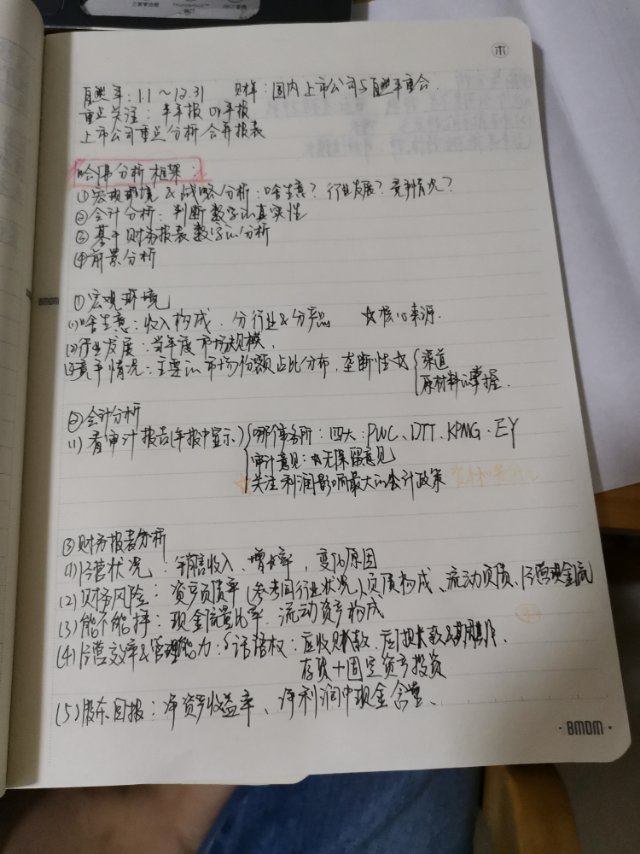 自然年：1.1～12.31　财年：国内上市公司与自然年重合.
重点关注：半年报 or 年报
上市公司重点分析合并报表
哈佛分析框架：
①宏观环境 & 战略分析：啥生意？行业发展？竞争情况？
②会计分析：判断数字的真实性
③基于财务报表数字的分析
④前景分析
①宏观环境
(1)啥生意：收入构成．分行业&分产品　☆核心来源.
(2)行业发展：当年度市场规模.
(3)竞争情况：主要的市场份额占比分布，垄断性
渠道
原材料的掌握.
②会计分析
(1)看审计报告(年报中显示)
哪个事务所：四大：PWC、DTT、KPMG、EY
审计意见：无保留意见
☆关注利润影响最大的会计政策
③财务报表分析
(1)经营状况：销售收入、增长率，变化原因
(2)财务风险：资产负债率(参考同行业状况)、负债构成、流动负债、经营现金流
(3)能不能挣：现金流量比率、流动资产构成
(4)经营效率&管理能力：话语权：应收账款、应收
存货+固定资产投资
(5)股东回报：净资产收益率、净利润中现金含量、
木
BMDM